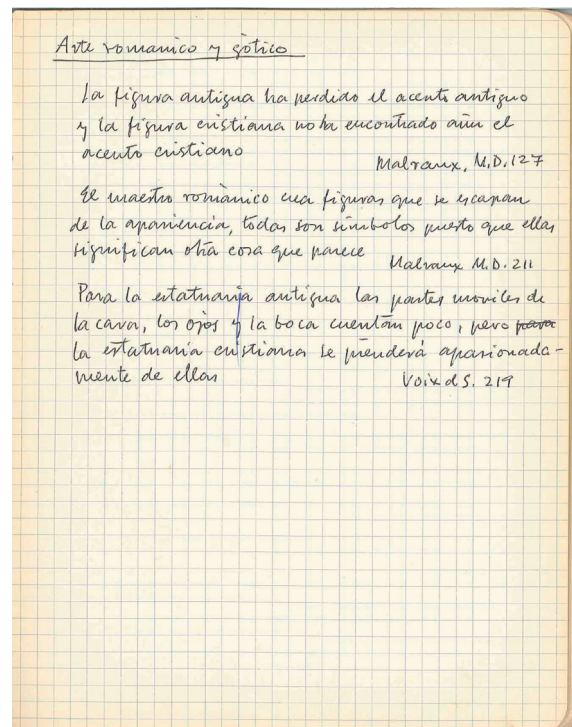 Arte romanico y gótico
La figura antigua ha perdido el acento antiguo
y la figura cristiana no ha encontrado aún el
acento cristiano
Malraux, M.D. 127
El maestro románico crea figuras que se escapan
de la apariencia, todas son símbolos puesto que ellas
significan otra cosa que parece
Malraux M.D. 211
Para la estatuaria antigua las partes moviles de
la cara, los ojos y la boca cuentan poco, pero para
la estatuaria cristiana se prenderá apasionada-
mente de ellas
Voix d S. 219